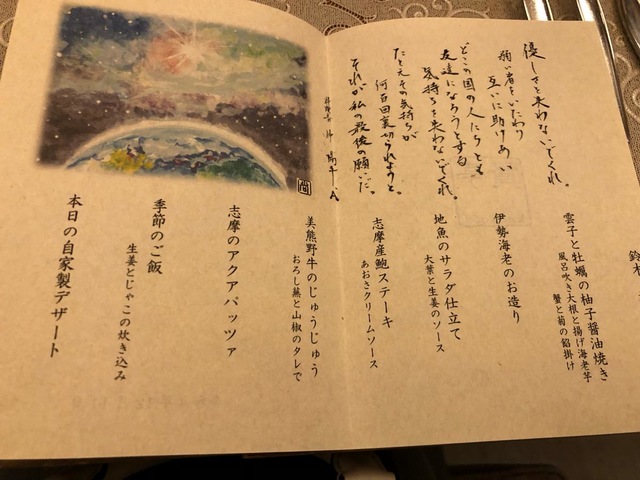 優しさを失わないでくれ。
弱い者をいたわり
互いに助けあい
どこの国の人たちとも
友達になろうとする
気持ちを失わないでくれ。
たとえその気持ちが
何百回裏切られようと。
それが私の最後の願いだ。
A
鈴木
雲子と牡蠣の柚子醤油焼き
風呂吹き大根と揚げ海老芋
蟹と菊の餡掛け
伊勢海老のお造り
地魚のサラダ仕立て
大葉と生姜のソース
志摩産鮑ステーキ
あおさクリームソース
美熊野牛のじゅうじゅう
おろし蕪と山椒のタレで
志摩のアクアパッツァ
季節のご飯
生姜とじゃこの炊き込み
本日の自家製デザート